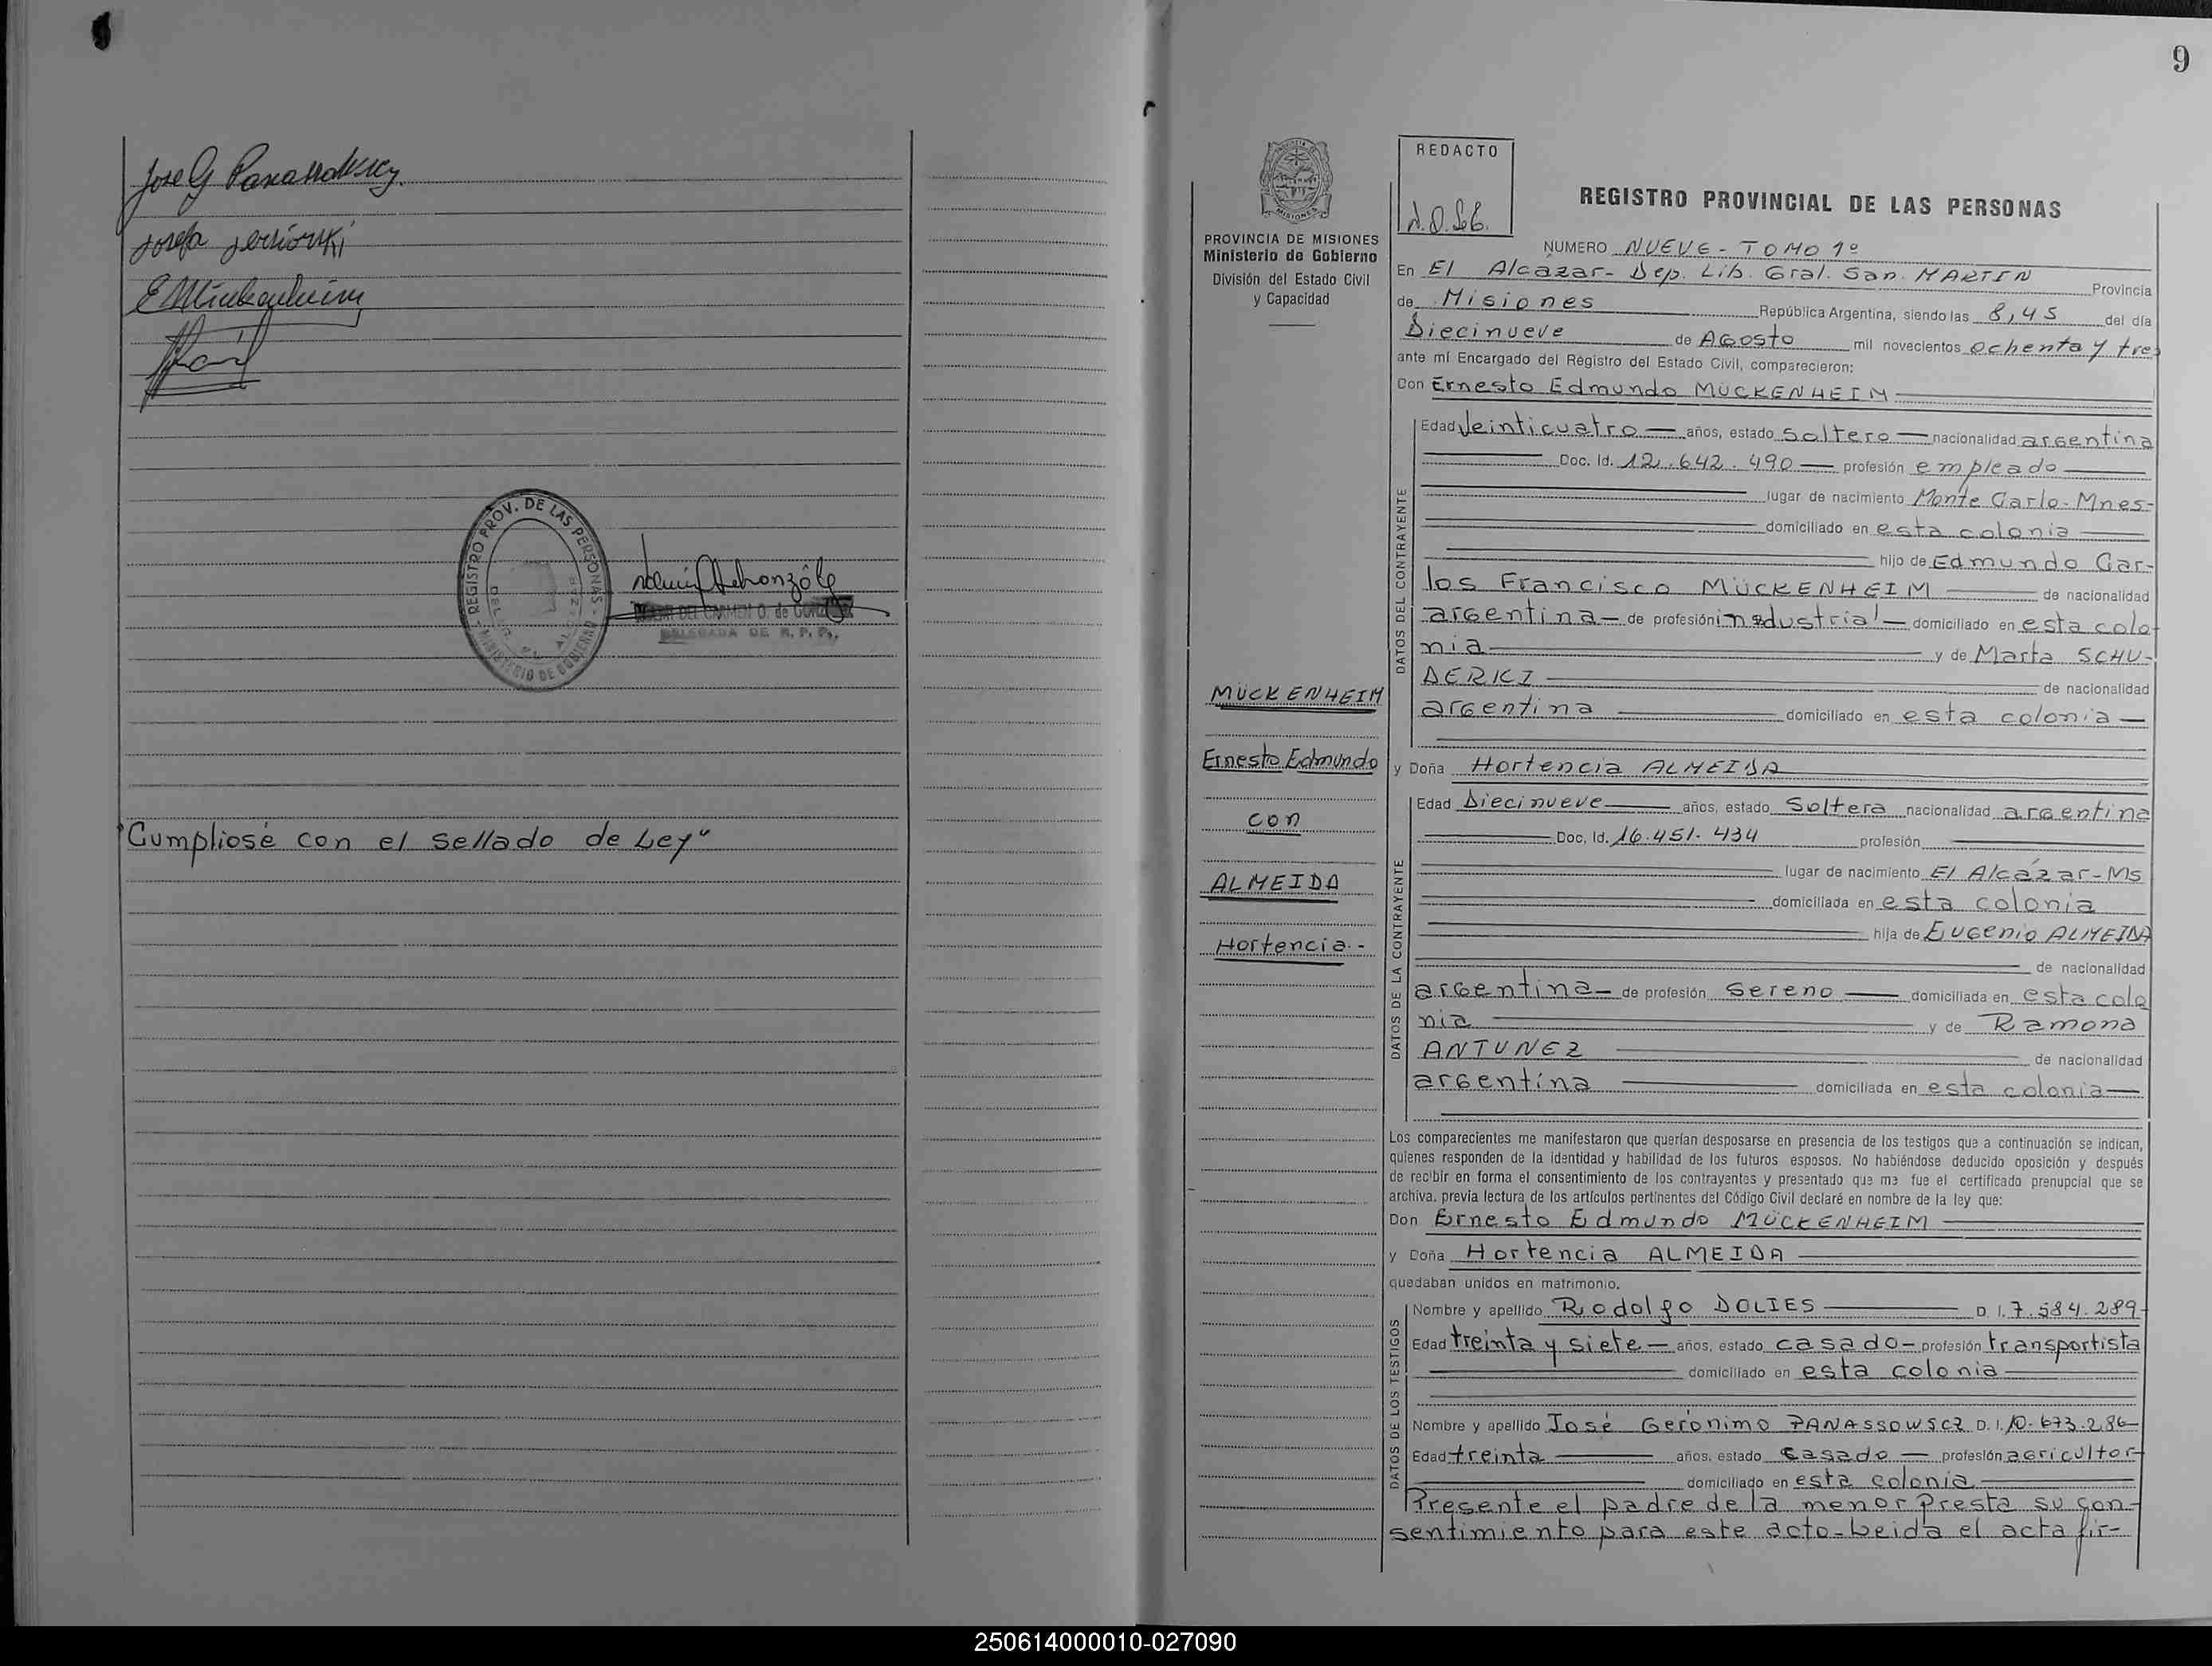 Jose G Panassowscz
Josefa
E Mückenheim
REGISTRO PROV. DE LAS PERSONAS - MINISTERIO DE GOBIERNO
DEL CARMEN O. de
DELEGADA DE R. P. P.
"Cumpliosé con el sellado de Ley"
9
PROVINCIA DE MISIONES
Ministerio de Gobierno
División del Estado Civil
y Capacidad
MÜCKENHEIM
Ernesto Edmundo
con
ALMEIDA
Hortencia.-
REDACTO
REGISTRO PROVINCIAL DE LAS PERSONAS
NUMERO NUEVE - TOMO 1º
En El Alcázar - Dep. Lib. Gral. San. MARTIN Provincia
de Misiones República Argentina, siendo las 8,45 del día
Diecinueve de Agosto mil novecientos ochenta y tres
ante mí Encargado del Registro del Estado Civil, comparecieron:
Don Ernesto Edmundo MÜCKENHEIM
DATOS DEL CONTRAYENTE
Edad Veinticuatro años, estado soltero nacionalidad argentina
Doc. Id. 12.642.490 profesión empleado
lugar de nacimiento Monte Carlo-Mnes-
domiciliado en esta colonia
hijo de Edmundo Car-
los Francisco MÜCKENHEIM de nacionalidad
argentina de profesión industrial domiciliado en esta colo
nia y de Marta SCHU-
DERKI de nacionalidad
argentina domiciliado en esta colonia
y Doña Hortencia ALMEIDA
DATOS DE LA CONTRAYENTE
Edad Diecinueve años, estado Soltera nacionalidad argentina
Doc. Id. 16.451.434 profesión
lugar de nacimiento El Alcázar-Ms
domiciliada en esta colonia
hija de Eugenio ALMEIDA
de nacionalidad
argentina de profesión sereno domiciliada en esta colo
nia y de Ramona
ANTUNEZ de nacionalidad
argentina domiciliada en esta colonia
Los comparecientes me manifestaron que querían desposarse en presencia de los testigos que a continuación se indican,
quienes responden de la identidad y habilidad de los futuros esposos. No habiéndose deducido oposición y después
de recibir en forma el consentimiento de los contrayentes y presentado que me fue el certificado prenupcial que se
archiva, previa lectura de los artículos pertinentes del Código Civil declaré en nombre de la ley que:
Don Ernesto Edmundo MÜCKENHEIM
y Doña Hortencia ALMEIDA
quedaban unidos en matrimonio.
DATOS DE LOS TESTIGOS
Nombre y apellido Rodolfo DOLIES D. I. 7.584.289
Edad treinta y siete años, estado casado profesión transportista
domiciliado en esta colonia
Nombre y apellido José Gerónimo PANASSOWSCZ D. I. 10.673.286
Edad treinta años, estado casado profesión agricultor
domiciliado en esta colonia
Presente el padre de la menor presta su con-
sentimiento para este acto-Leida el acta fir-
250614000010-027090